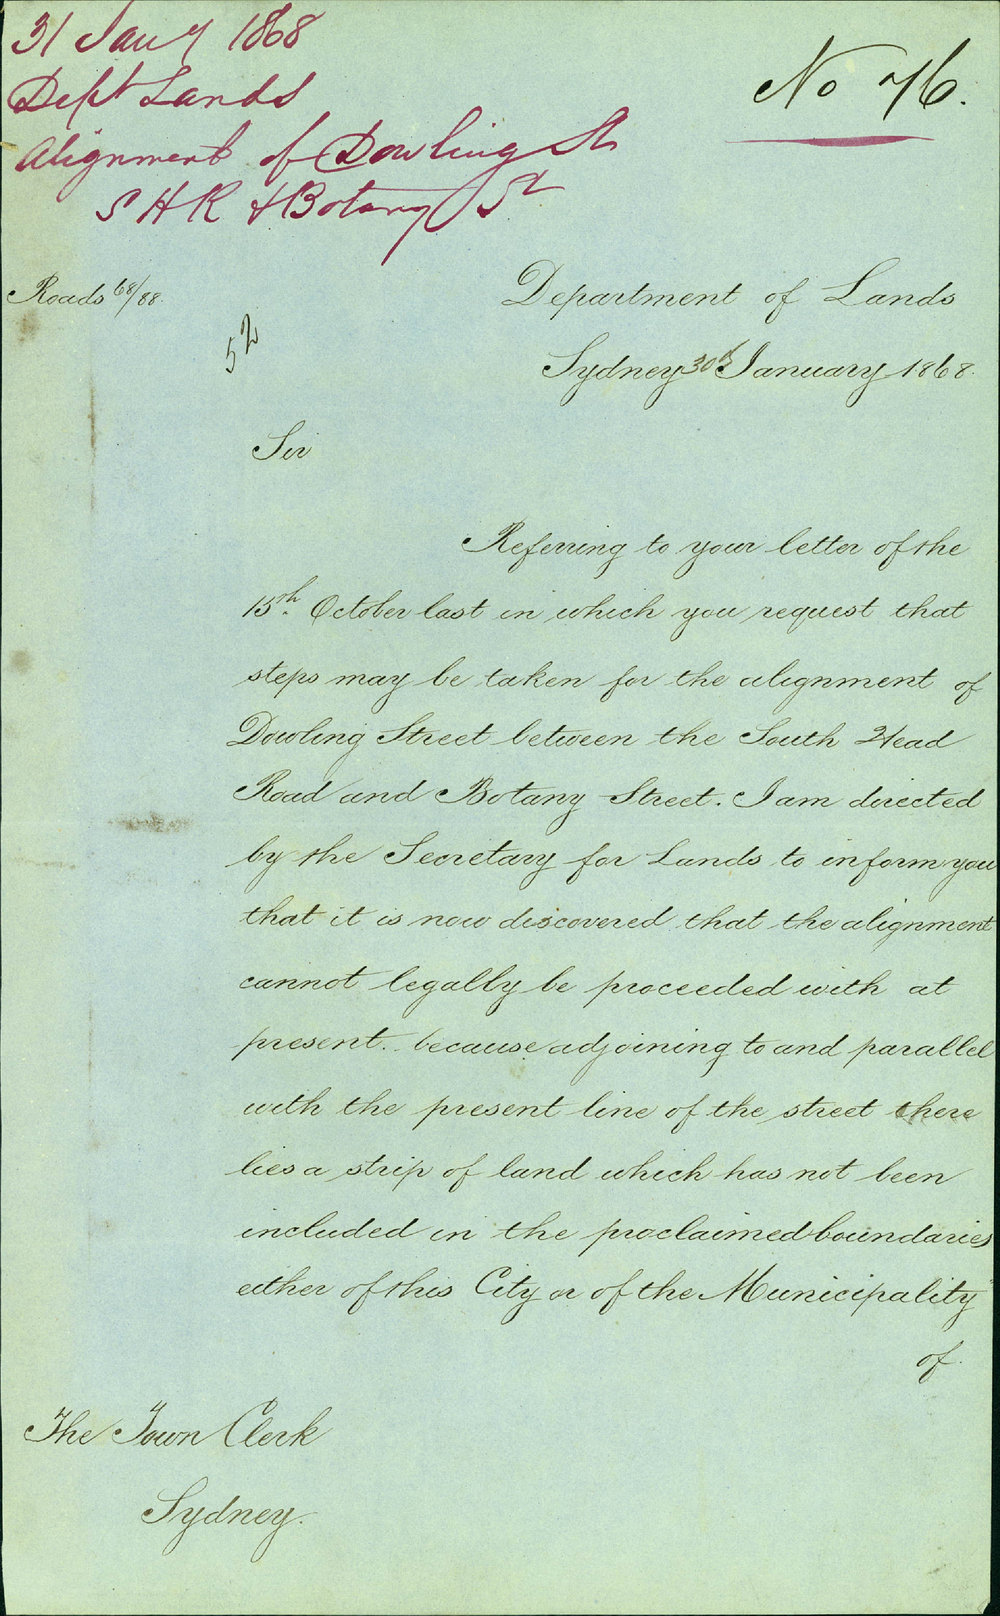 31 Jany 1868
Dept Lands
Alignment of Dowling St
S H R & Botany St
No 76.
Roads 68/88.
52
Department of Lands
Sydney 30th January 1868.
Sir
Referring to your letter of the
15th. October last in which you request that
steps may be taken for the alignment of
Dowling Street between the South Head
Road and Botany Street. I am directed
by the Secretary for Lands to inform you
that it is now discovered that the alignment
cannot legally be proceeded with at
present. because adjoining to and parallel
with the present line of the street there
lies a strip of land which has not been
included in the proclaimed boundaries
either of this City or of the Municipality
of
The Town Clerk
Sydney.